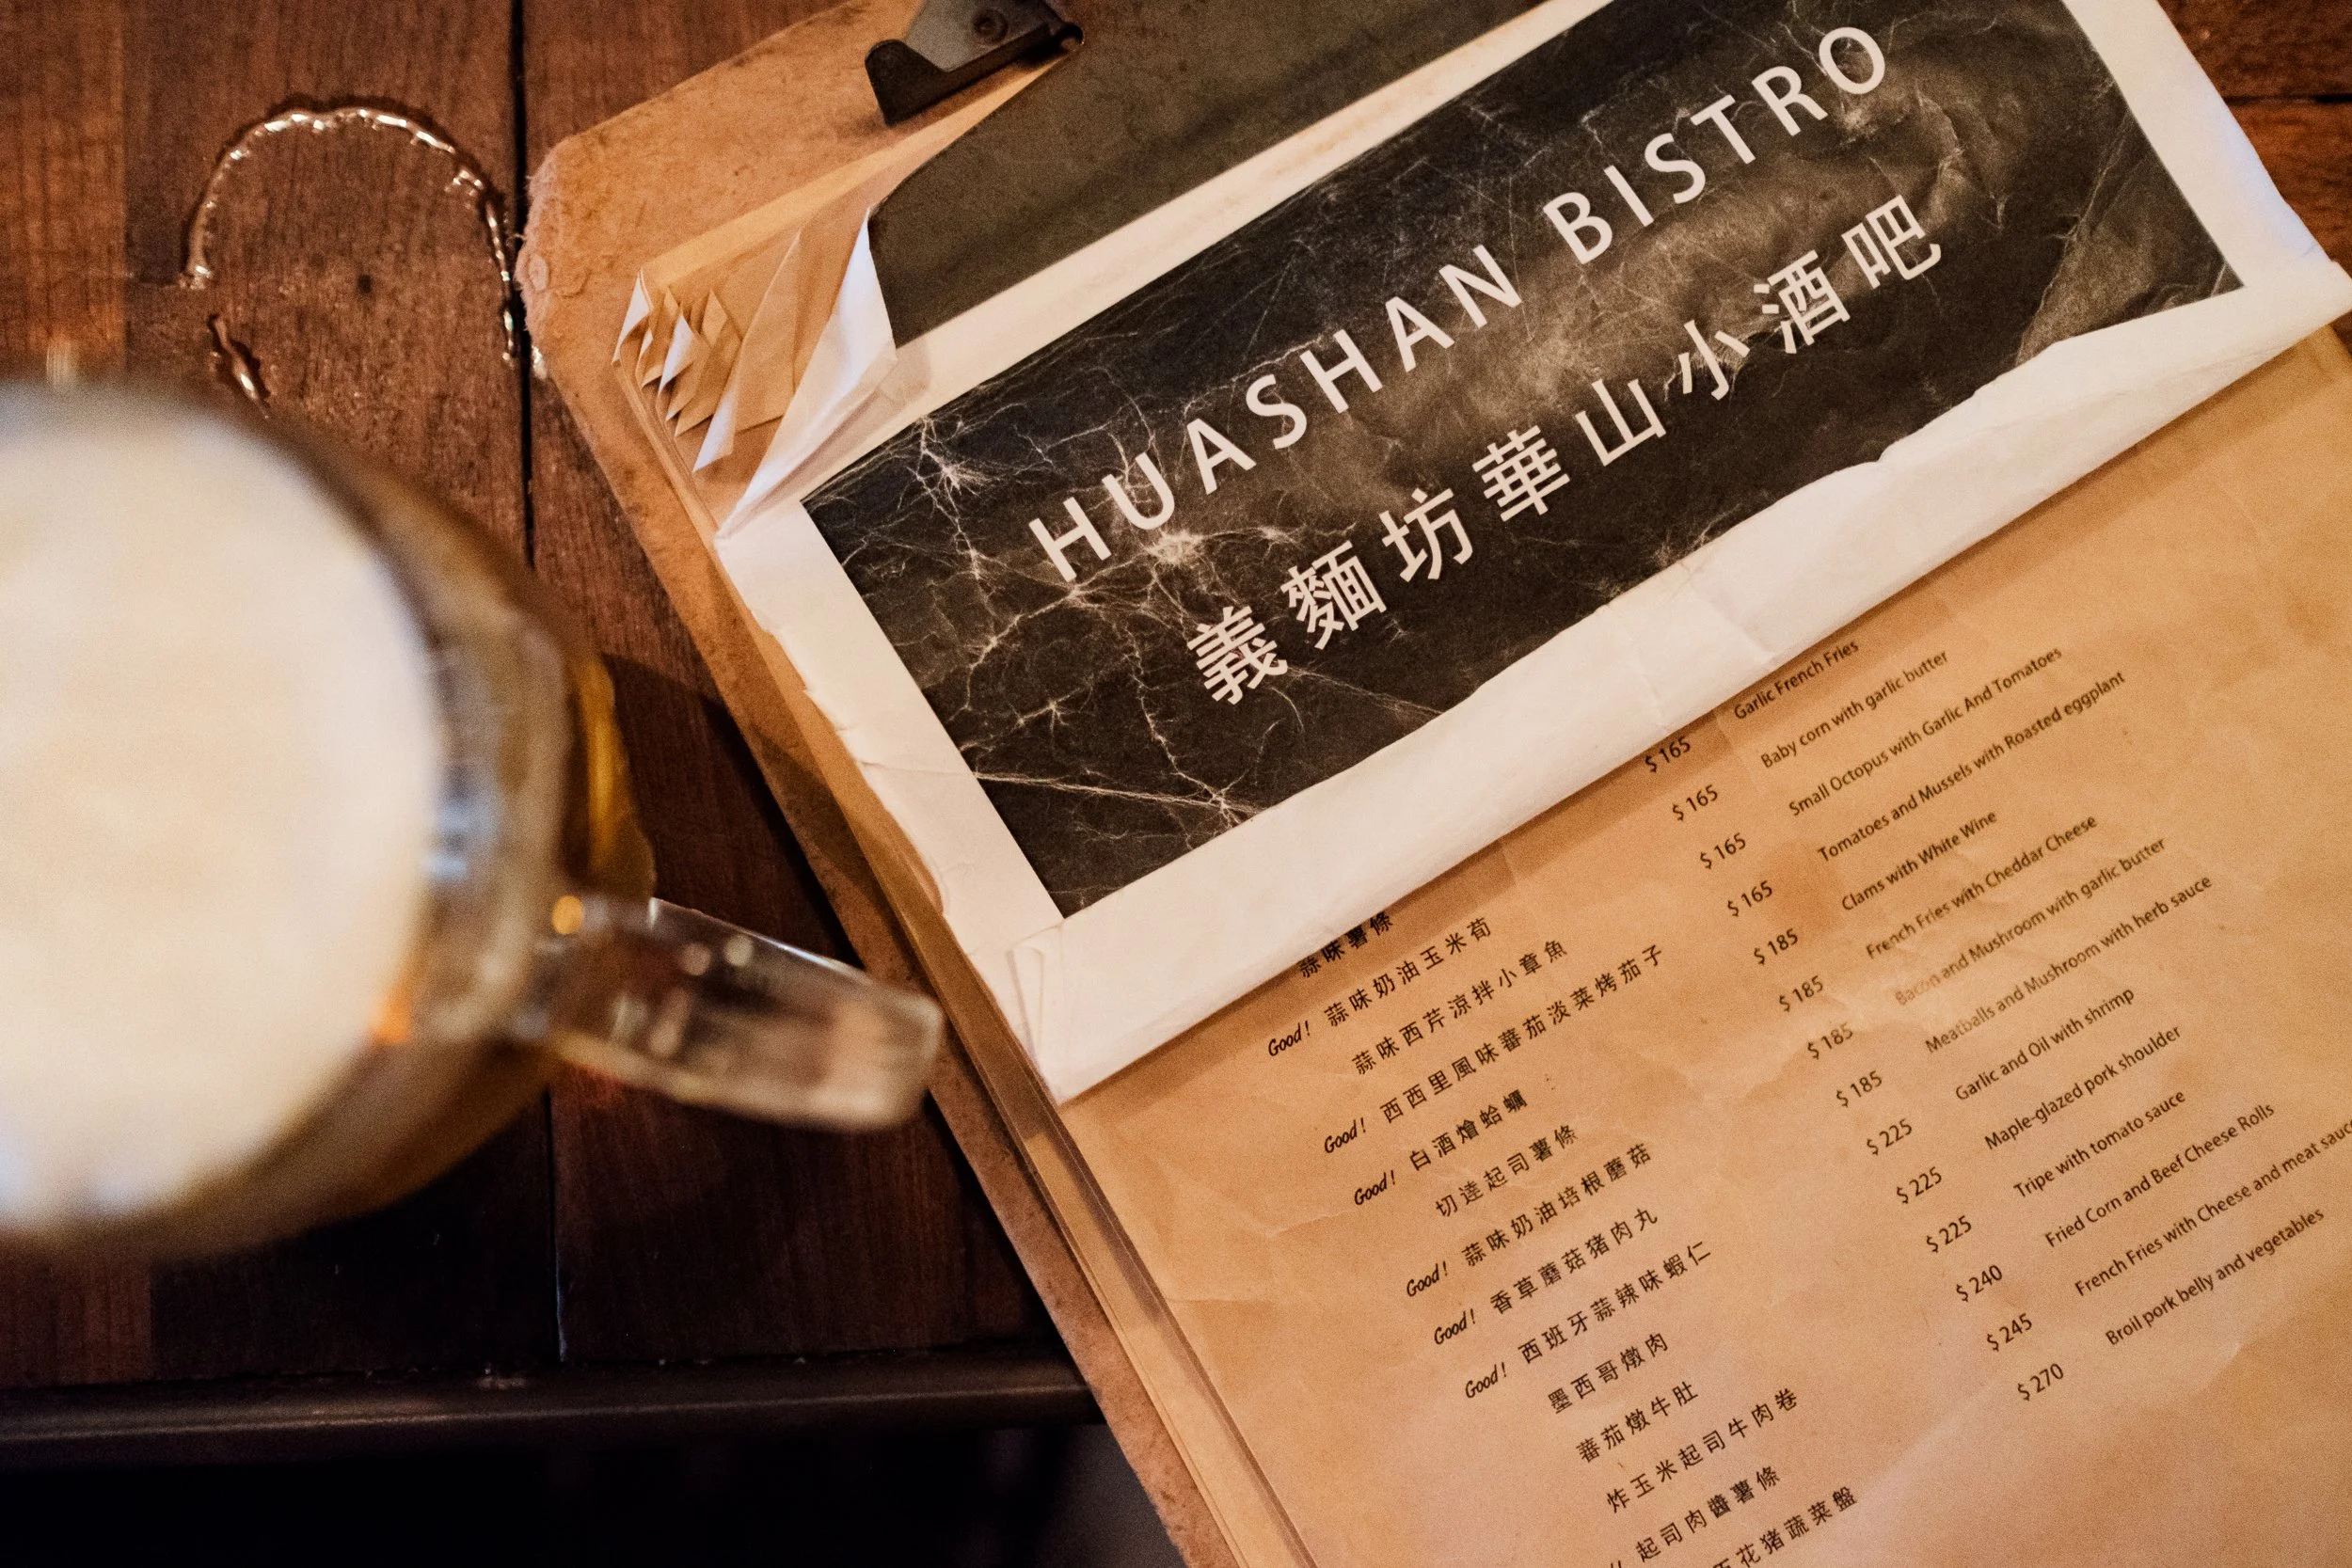 HUASHAN BISTRO
義麵坊華山小酒吧
蒜味薯條 $ 165 Garlic French Fries
Good! 蒜味奶油玉米荀 $ 165 Baby corn with garlic butter
蒜味西芹涼拌小章魚 $ 165 Small Octopus with Garlic And Tomatoes
Good! 西西里風味蕃茄淡菜烤茄子 $ 165 Tomatoes and Mussels with Roasted eggplant
Good! 白酒燴蛤蠣 $ 185 Clams with White Wine
切逹起司薯條 $ 185 French Fries with Cheddar Cheese
Good! 蒜味奶油培根蘑菇 $ 185 Bacon and Mushroom with garlic butter
Good! 香草蘑菇猪肉丸 $ 185 Meatballs and Mushroom with herb sauce
Good! 西班牙蒜辣味蝦仁 $ 225 Garlic and Oil with shrimp
墨西哥燉肉 $ 225 Maple-glazed pork shoulder
蕃茄燉牛肚 $ 225 Tripe with tomato sauce
炸玉米起司牛肉卷 $ 240 Fried Corn and Beef Cheese Rolls
起司肉醬薯條 $ 245 French Fries with Cheese and meat sauce
花猪蔬菜盤 $ 270 Broil pork belly and vegetables